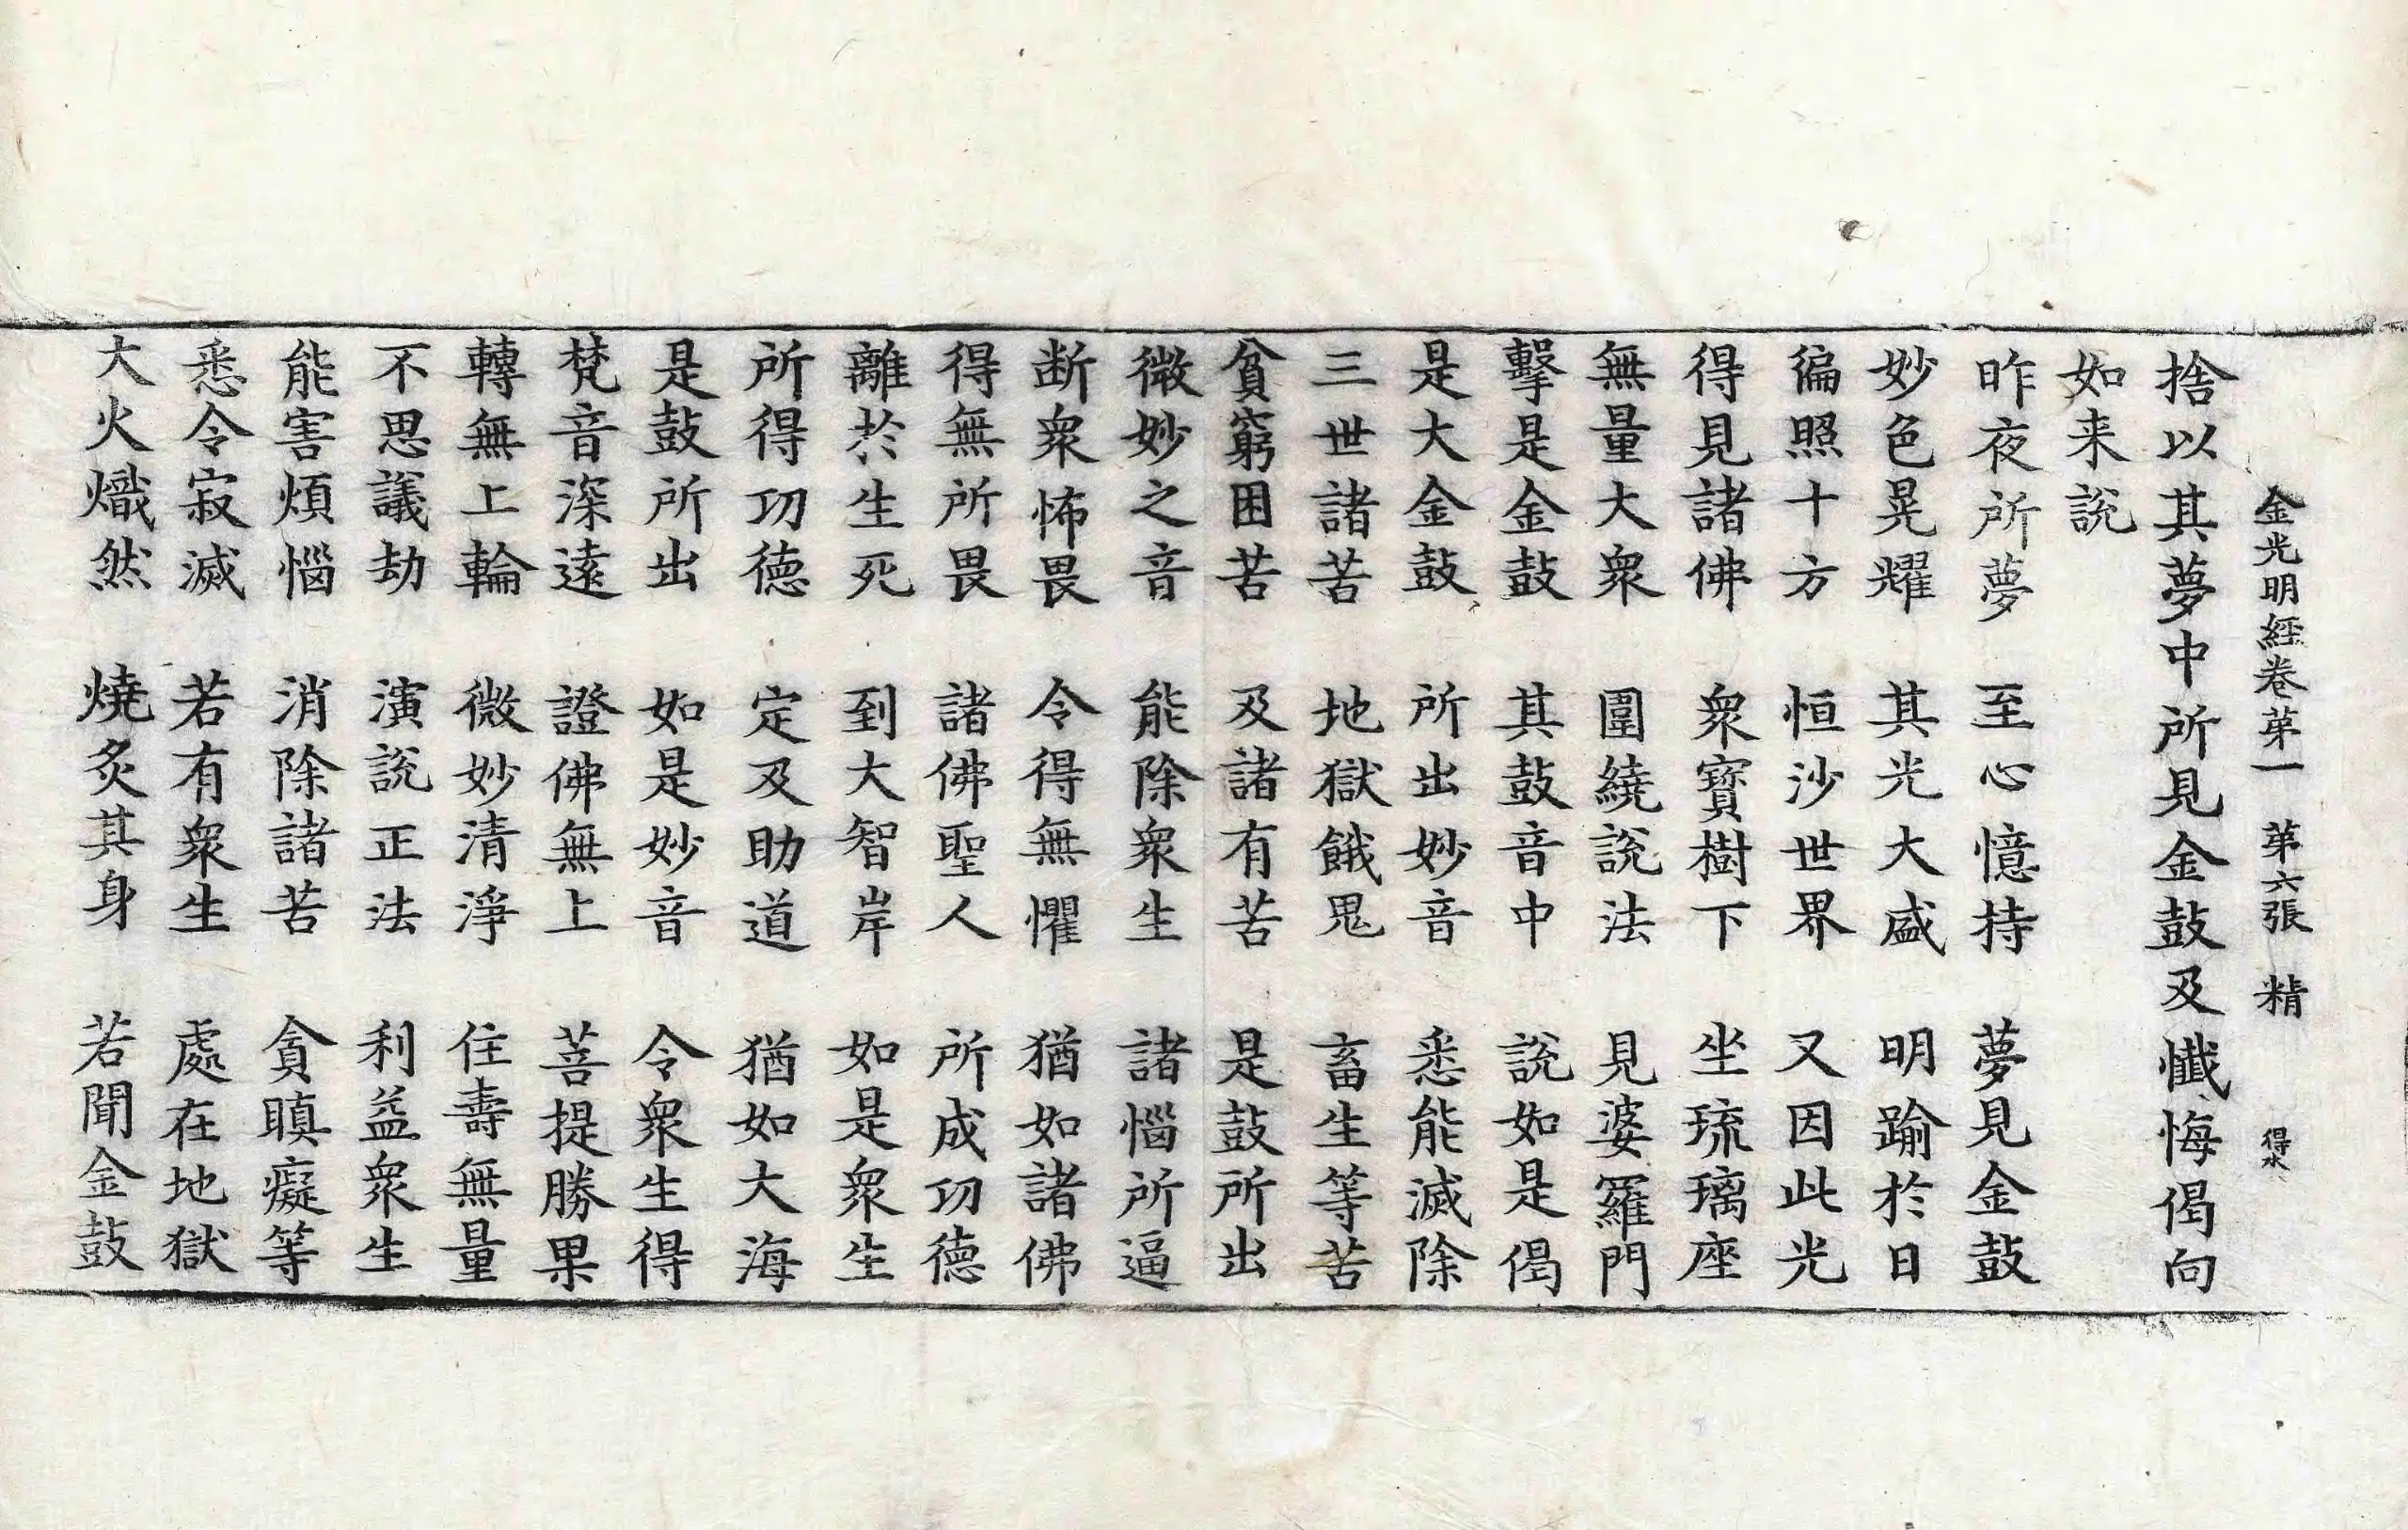 金光明經卷苐一　苐六張　精　得水
捨以其夢中所見金鼓及懺悔偈向
如来說
昨夜所夢　至心憶持　夢見金鼓
妙色晃耀　其光大盛　明踰於日
徧照十方　恒沙世界　又因此光
得見諸佛　衆寶樹下　坐琉璃座
無量大衆　圍繞說法　見婆羅門
擊是金鼓　其鼓音中　說如是偈
是大金鼓　所出妙音　悉能滅除
三世諸苦　地獄餓鬼　畜生等苦
貧窮困苦　及諸有苦　是鼓所出
微妙之音　能除衆生　諸惱所逼
断衆怖畏　令得無懼　猶如諸佛
得無所畏　諸佛聖人　所成功德
離於生死　到大智岸　如是衆生
所得功德　定及助道　猶如大海
是鼓所出　如是妙音　令衆生得
梵音深遠　證佛無上　菩提勝果
轉無上輪　微妙清淨　住壽無量
不思議劫　演說正法　利益衆生
能害煩惱　消除諸苦　貪瞋癡等
悉令寂滅　若有衆生　處在地獄
大火熾然　燒炙其身　若聞金鼓